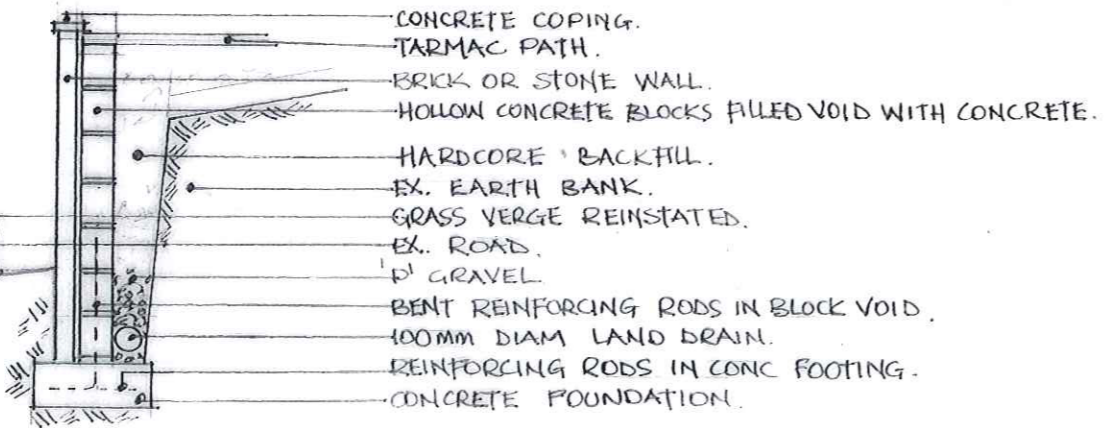 CONCRETE COPING.
TARMAC PATH.
BRICK OR STONE WALL.
HOLLOW CONCRETE BLOCKS FILLED VOID WITH CONCRETE.
HARDCORE BACKFILL.
EX. EARTH BANK.
GRASS VERGE REINSTATED.
EX. ROAD.
'P' GRAVEL.
BENT REINFORCING RODS IN BLOCK VOID.
100MM DIAM LAND DRAIN.
REINFORCING RODS IN CONC FOOTING.
CONCRETE FOUNDATION.